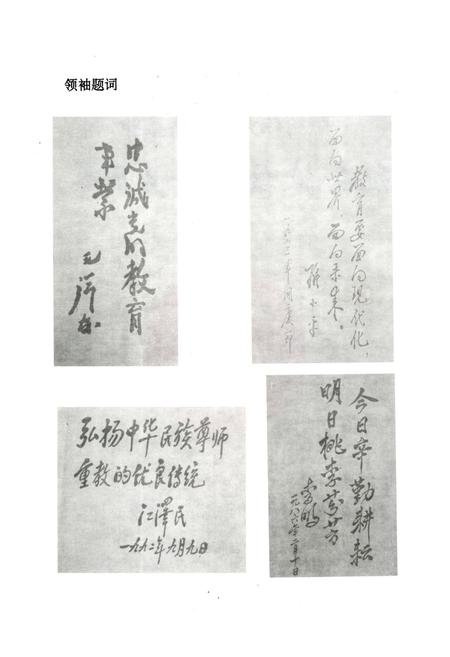 领袖题词
忠诚党的教育
事業
毛泽东
教育要面向现代化，
面向世界，面向未来。
邓小平
一九八三年国庆节
弘扬中华民族尊师
重教的优良传统
江泽民
一九九二年九月九日
今日辛勤耕耘
明日桃李芬芳
李鹏
一九八六年二月十日